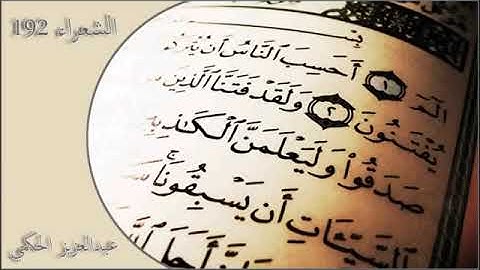 الشعراء 192
بِسْـ
الٓمٓ ١ أَحَسِبَ ٱلنَّاسُ أَن يُتْرَ
يُفْتَنُونَ ٢ وَلَقَدْ فَتَنَّا ٱلَّذِينَ
صَدَقُوا۟ وَلَيَعْلَمَنَّ ٱلْكَـٰذِبِ
ٱلسَّيِّـَٔاتِ أَن يَسْبِقُونَا
أَجَلَ
عبدالعزيز الحكمي